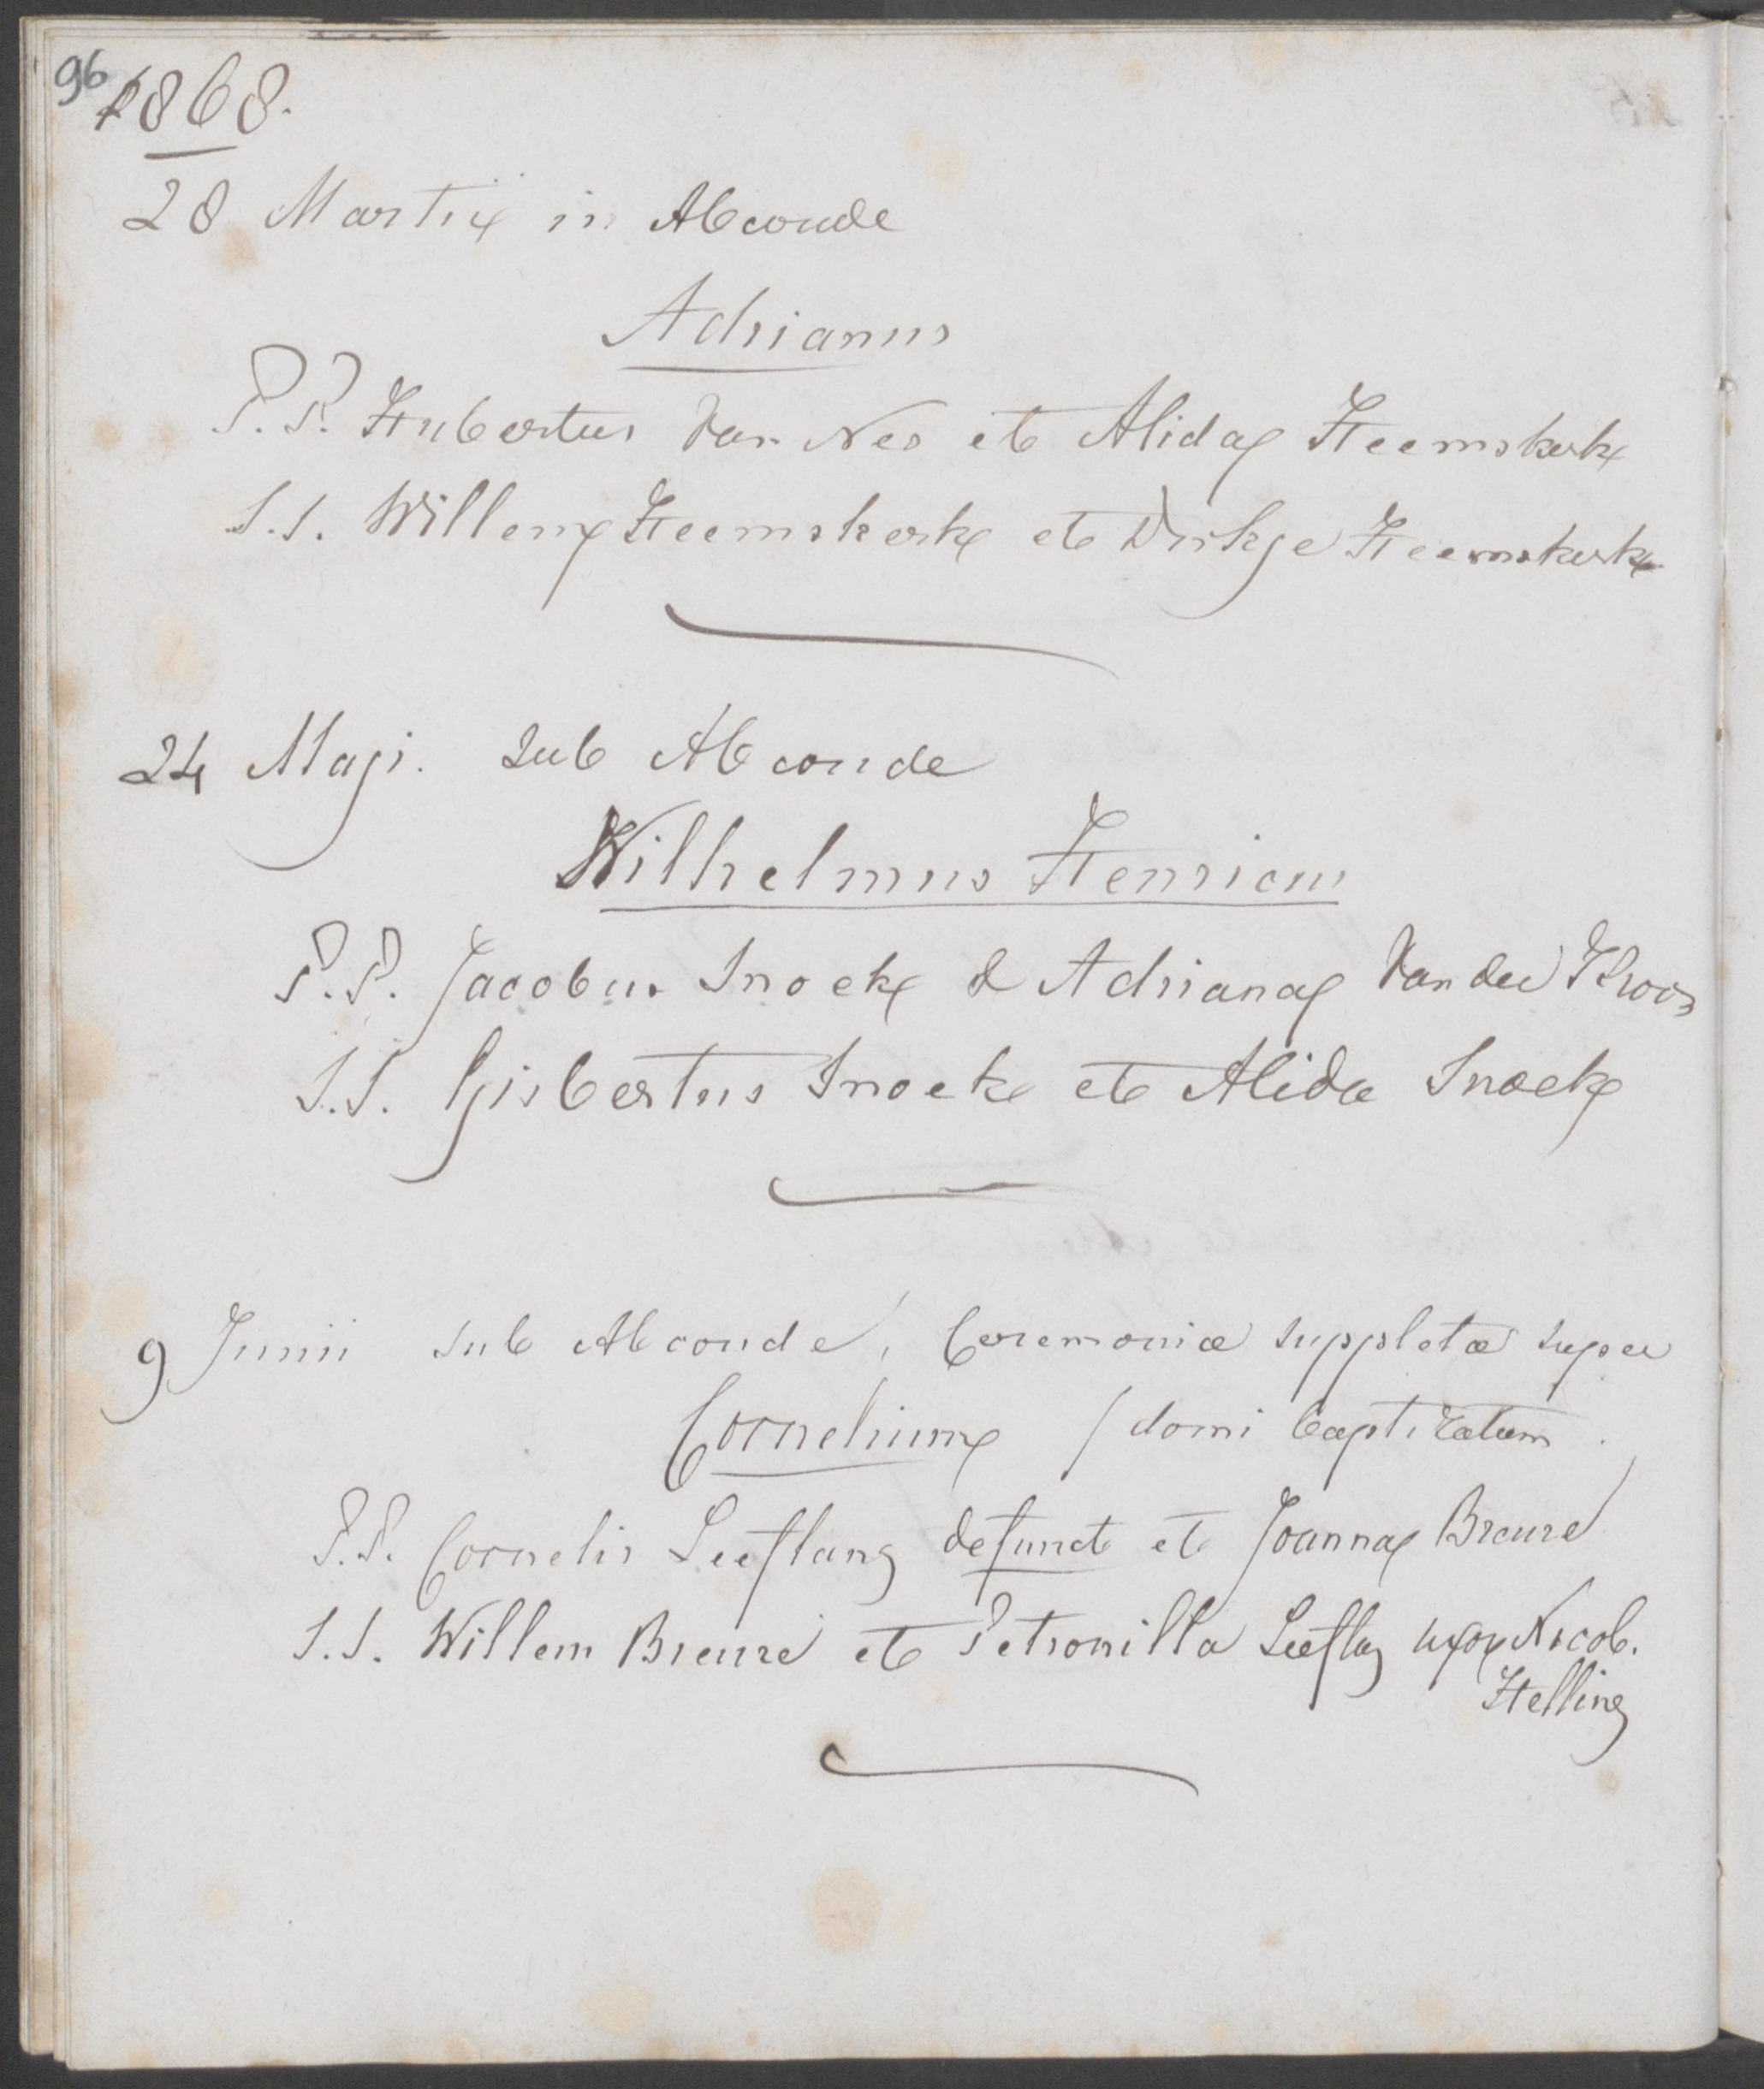 96
1868.
28 Martii in Abcoude
Adrianus
P.P. Hubertus Van Nes et Alida Heemskerk
S.S. Willem Heemskerk et Dirkje Heemskerk
24 Maji. sub Abcoude
Wilhelmus Henricus
P.P. Jacobus Snoek & Adriana Van der Kroon
S.S. Gisbertus Snoek et Alida Snoek
9 Junii sub Abcoude, Ceremoniæ suppletæ super
Cornelium / domi baptizatum.
P.P. Cornelis Leeflang defunct et Joanna Breure
S.S. Willem Breure et Petronilla Leeflang uxor Nicol.
Helling